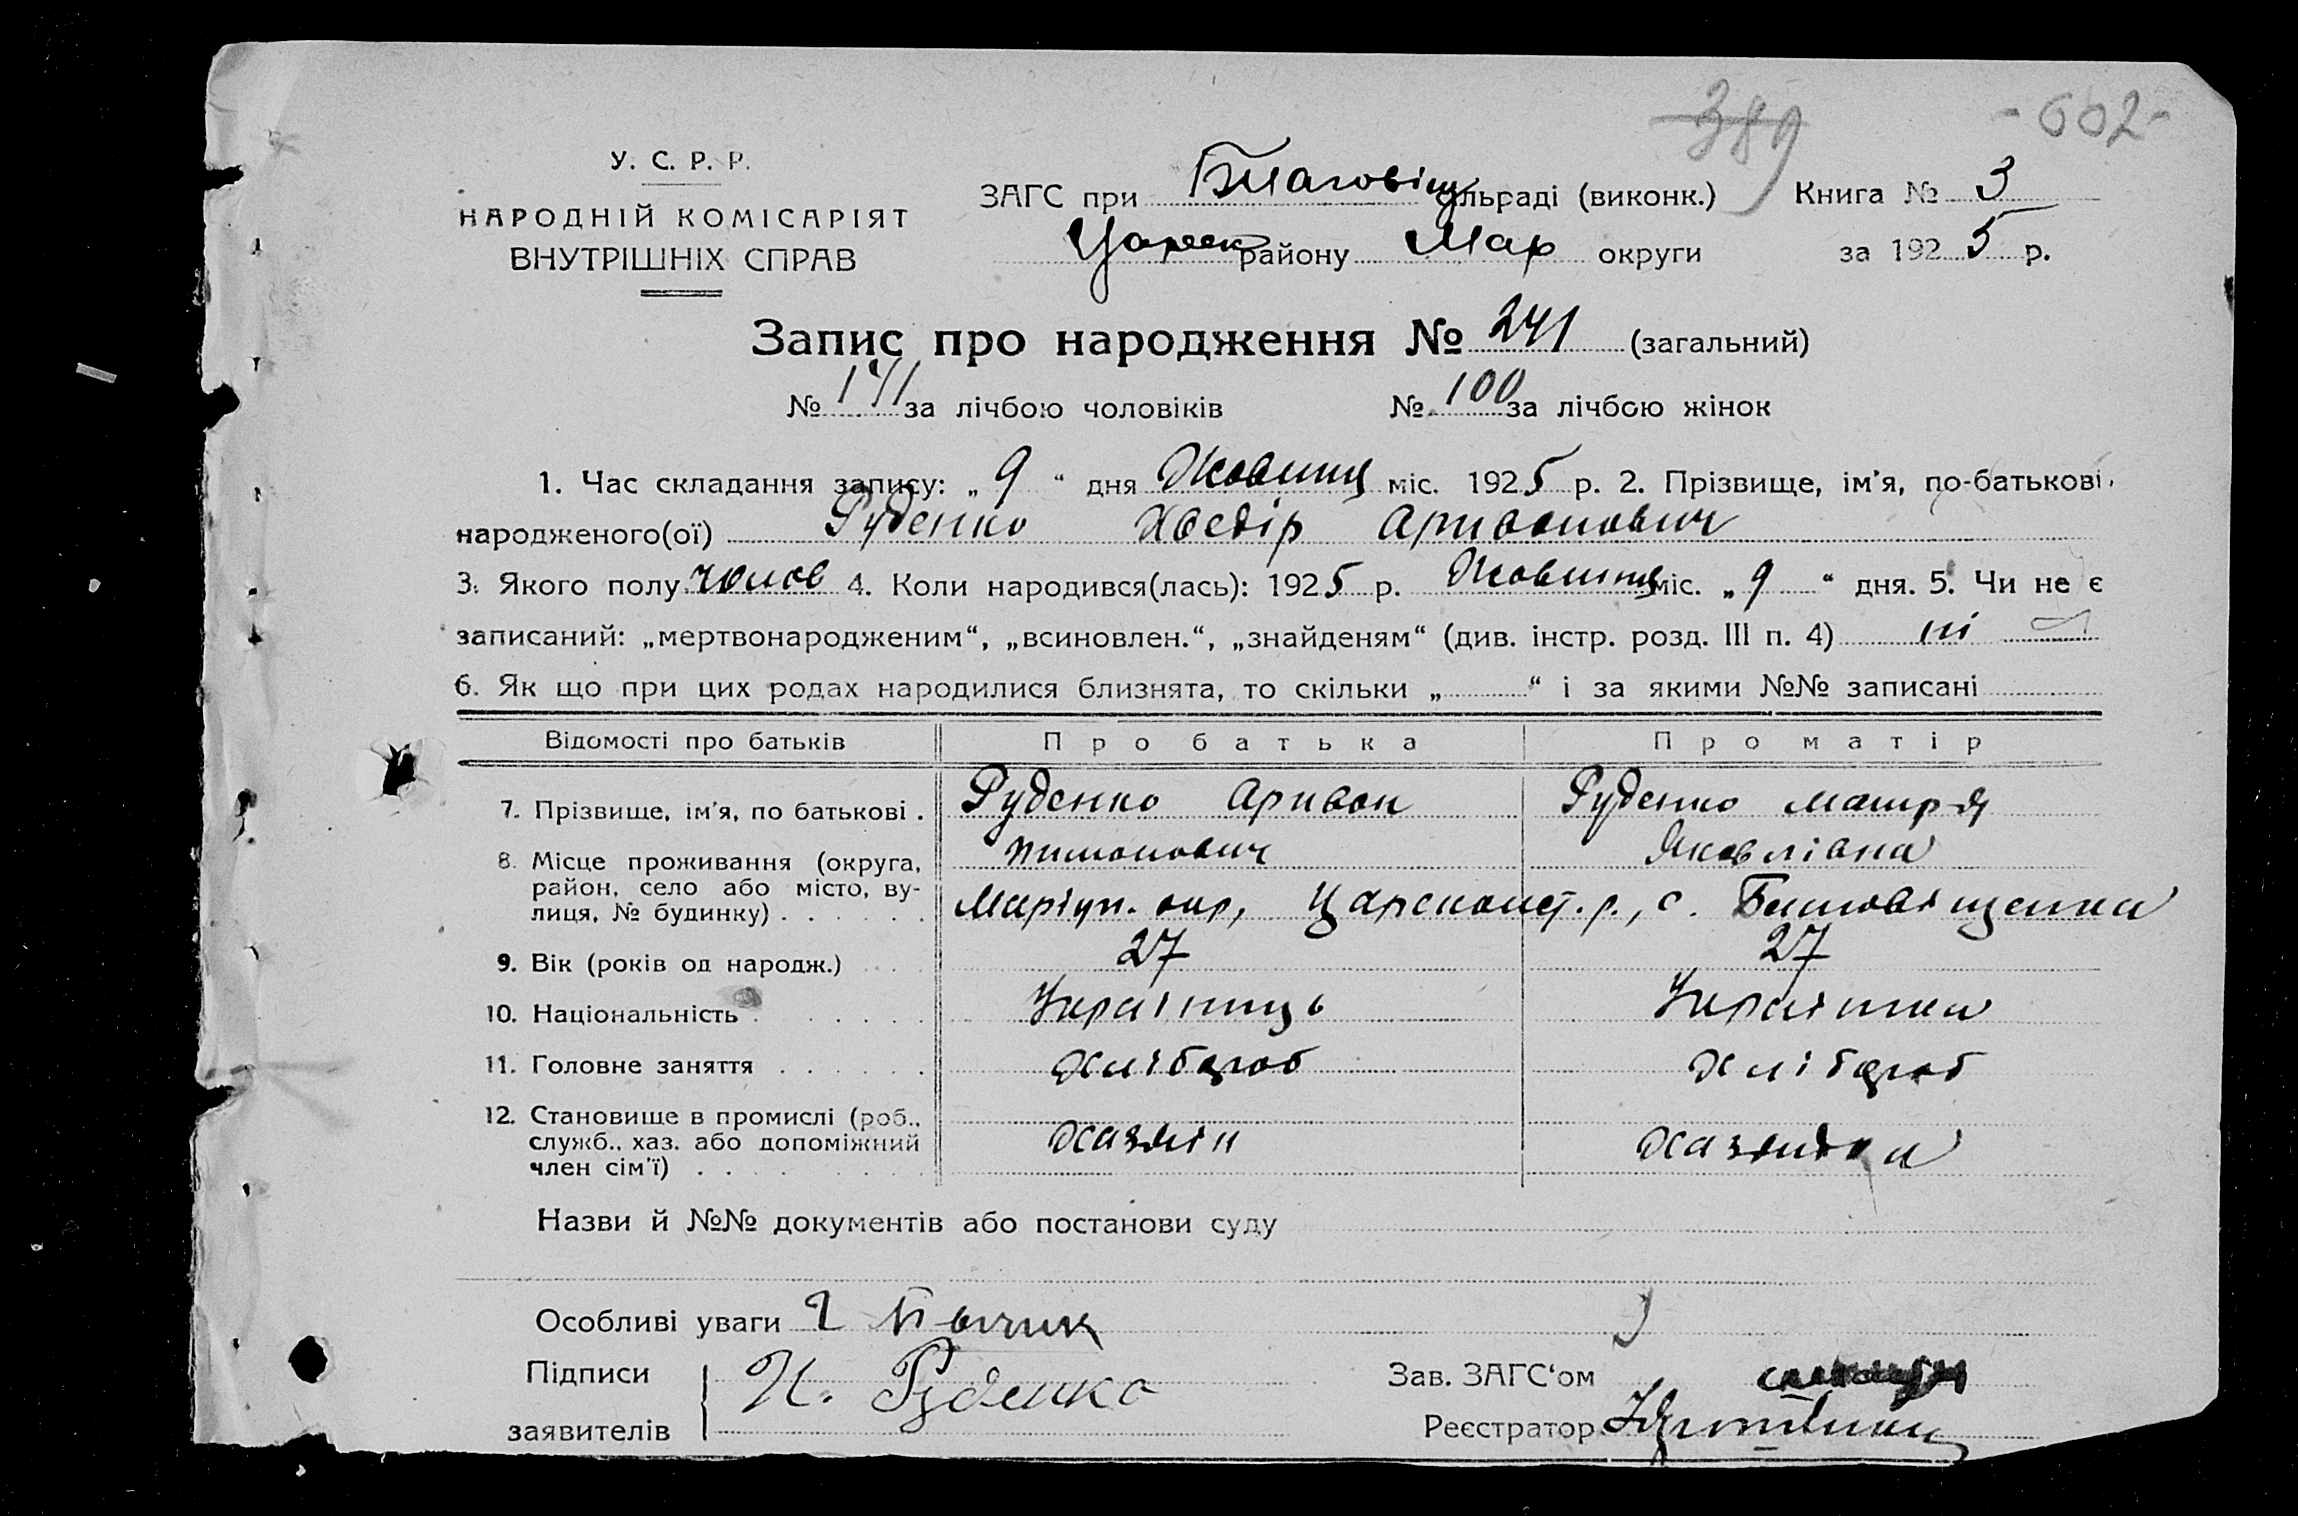 389 -602-
У. С. Р. Р.
НАРОДНІЙ КОМІСАРІЯТ
ВНУТРІШНІХ СПРАВ
ЗАГС при Благовіщ сільраді (виконк.) Книга № 3
Царек району Мар округи за 1925 р.
Запис про народження № 241 (загальний)
№ 141 за лічбою чоловіків № 100 за лічбою жінок
1. Час складання запису: „9“ дня Жовтня міс. 1925 р. 2. Прізвище, ім'я, по-батькові
народженого(ої) Руденко Хведір
3. Якого полу чолов 4. Коли народився(лась): 1925 р. Жовтня міс. „9“ дня. 5. Чи не є
записаний: „мертвонародженим“, „всиновлен.“, „знайденям“ (див. інстр. розд. III п. 4) ні
6. Як що при цих родах народилися близнята, то скільки „ “ і за якими №№ записані
Відомості про батьків Про батька Про матір
7. Прізвище, ім'я, по батькові . Руденко Руденко Мотря
Яковлівна
8. Місце проживання (округа, район, село або місто, вулиця, № будинку) Маріуп. окр, Царсконст. р., с.
9. Вік (років од народж.) 27 27
10. Національність Українець Українка
11. Головне заняття Хлібороб Хлібороб
12. Становище в промислі (роб., служб., хаз. або допоміжний член сім'ї) Хазяін Хазяйка
Назви й №№ документів або постанови суду
Особливі уваги
Підписи Руденко Зав. ЗАГС'ом
заявителів Реєстратор